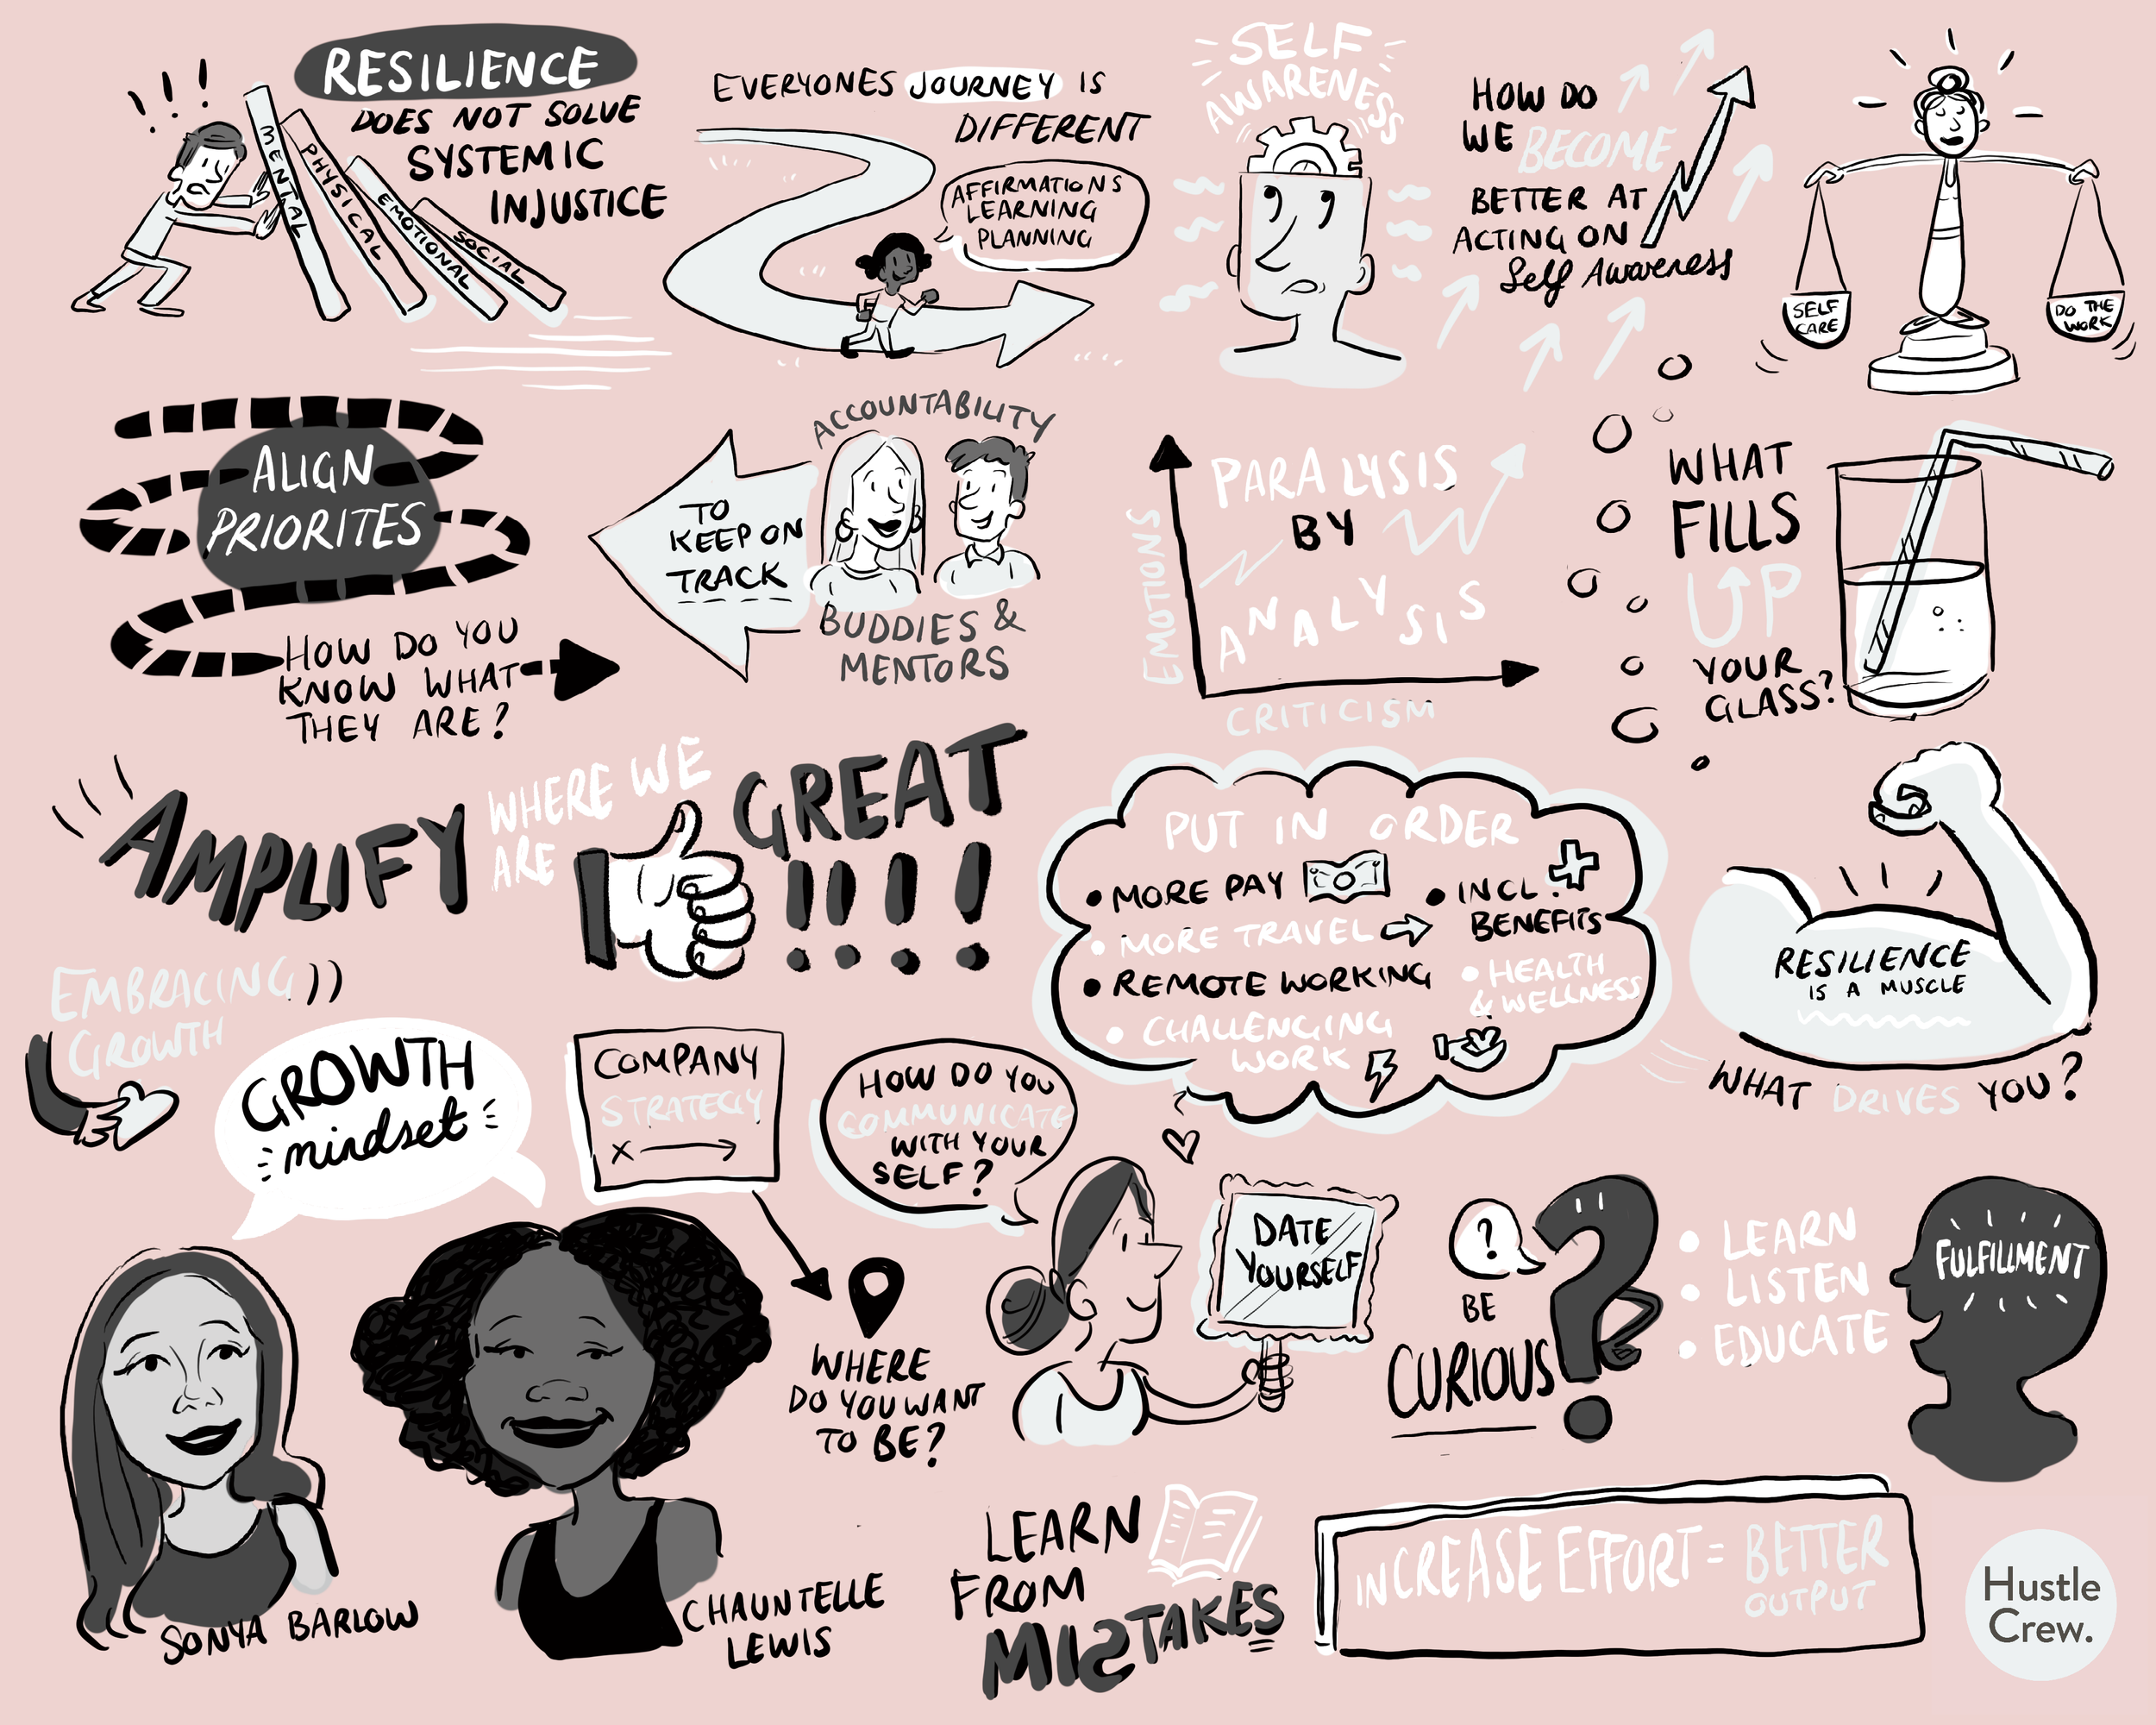 RESILIENCE
DOES NOT SOLVE
SYSTEMIC
INJUSTICE
MENTAL
PHYSICAL
EMOTIONAL
SOCIAL
EVERYONES JOURNEY IS
DIFFERENT
AFFIRMATIONS
LEARNING
PLANNING
SELF
AWARENESS
HOW DO
WE BECOME
BETTER AT
ACTING ON
Self Awareness
SELF
CARE
DO THE
WORK
ALIGN
PRIORITES
HOW DO YOU
KNOW WHAT
THEY ARE?
TO
KEEP ON
TRACK
ACCOUNTABILITY
BUDDIES &
MENTORS
EMOTIONS
PARALYSIS
BY
ANALYSIS
CRITICISM
WHAT
FILLS
UP
YOUR
GLASS?
AMPLIFY
WHERE WE
ARE
GREAT
!!!!
PUT IN ORDER
• MORE PAY
• MORE TRAVEL
• REMOTE WORKING
• CHALLENGING
WORK
• INCL.
BENEFITS
• HEALTH
& WELLNESS
RESILIENCE
IS A MUSCLE
WHAT DRIVES YOU?
EMBRACING
GROWTH
GROWTH
mindset
COMPANY
STRATEGY
X
HOW DO YOU
COMMUNICATE
WITH YOUR
SELF?
WHERE
DO YOU WANT
TO BE?
DATE
YOURSELF
?
BE
CURIOUS
?
• LEARN
• LISTEN
• EDUCATE
FULFILLMENT
SONYA BARLOW
CHAUNTELLE
LEWIS
LEARN
FROM
MISTAKES
INCREASE EFFORT = BETTER
OUTPUT
Hustle
Crew.